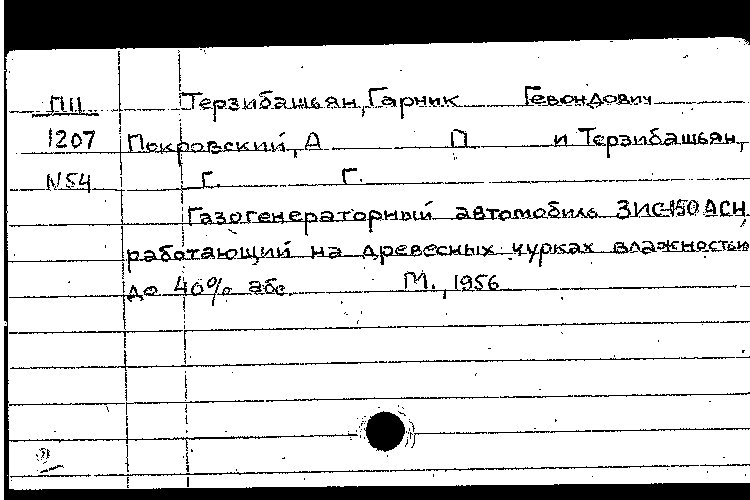 ПП Терзибашьян, Гарник Гевондович
1207 Покровский, А П и Терзибашьян,
N54 Г. Г.
Газогенераторный автомобиль ЗИС-150 АСН,
работающий на древесных чурках влажностью
до 40% абс М., 1956